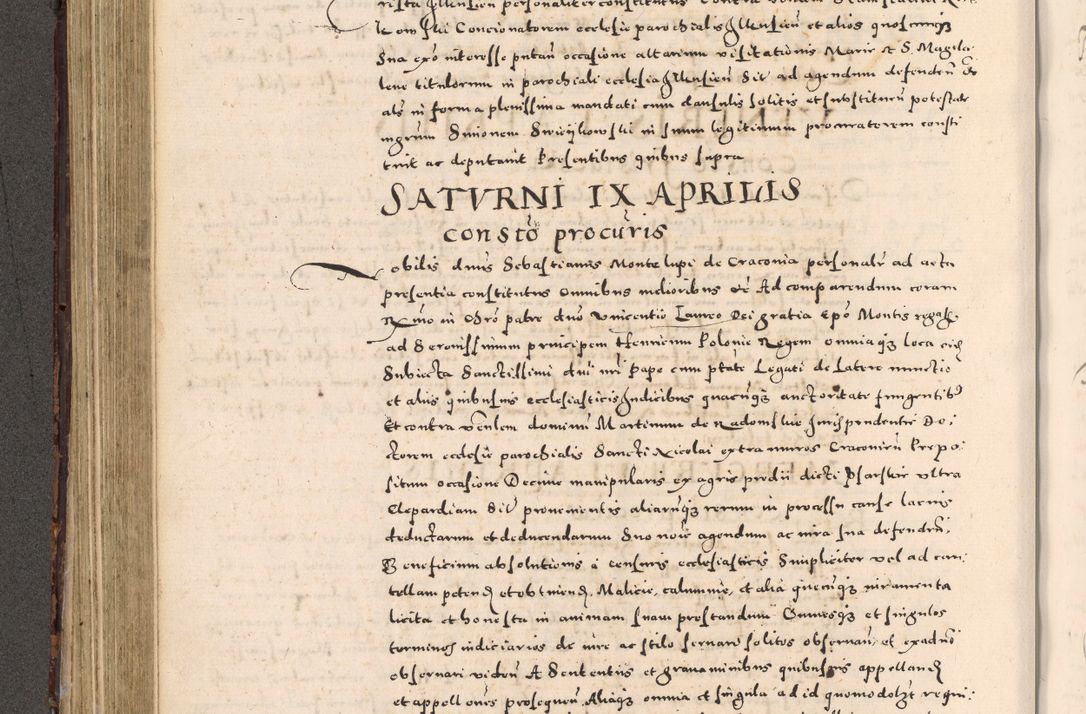 lkowskii Concionatorem ecclesie parochialis Illkusien et alios quoscunqz
Sua exo interesse putan occasione altarium visitationis Marie et S. Magda
lene titulorum in parochiali ecclesia Illkusien Sit ad agendum defenden et
als in forma plenissima mandati cum clausulis solitis et substituen potestate
mgrum Simonem in suum legitimum procuratorem consti
tuit ac deputavit Presentibus quibus supra
SATVRNI IX APRILIS
consto procuris
Nobilis dnus Sebastianus Monte lupi de Cracovia personalr ad acta
presentia constitutus Omnibus melioribus etc Ad comparendum coram
Rmo in Chro patre dno Vincentio Laureo Dei gratia Epo Montis regal
ad Serenissimum principem Henricum Polonie Regem omniaqz loca eis
Subiecta Sanctissimi dni nri Pape cum ptate Legati de Latere nunctio
et aliis quibusvis ecclesiasticis Iudicibus quacunqz auctoritate fungentib
Et contra Venlem dominum Martinum de Radomsko Iurisprudentie Do
ctorem ecclesie parochialis Sancti Nicolai extra muros Cracovien Prepo
situm occasione Decime manipularis ex agris predii dicti Psarskie ultra
Clepardiam Sit provenientis aliarumqz rerum in processu cause lacius
deductarum et deducendarum Suo noie agendum ac iura sua defenden
Beneficium absolutionis a censuris ecclesiasticis Simpliciter vel ad cau
tellam petend et obtinend, Malicie, calumnie, et alia quecunqz iuramenta
licita et honesta in animam suam prestandum Omnesqz et singulos
terminos iudiciarios de iure ac stilo servari solitos observan et
observari viden A Sententiis et gravaminibus quibusvis appelland
et appellones prosequen Aliaqz omnia et singula ad id quomodolzt requi